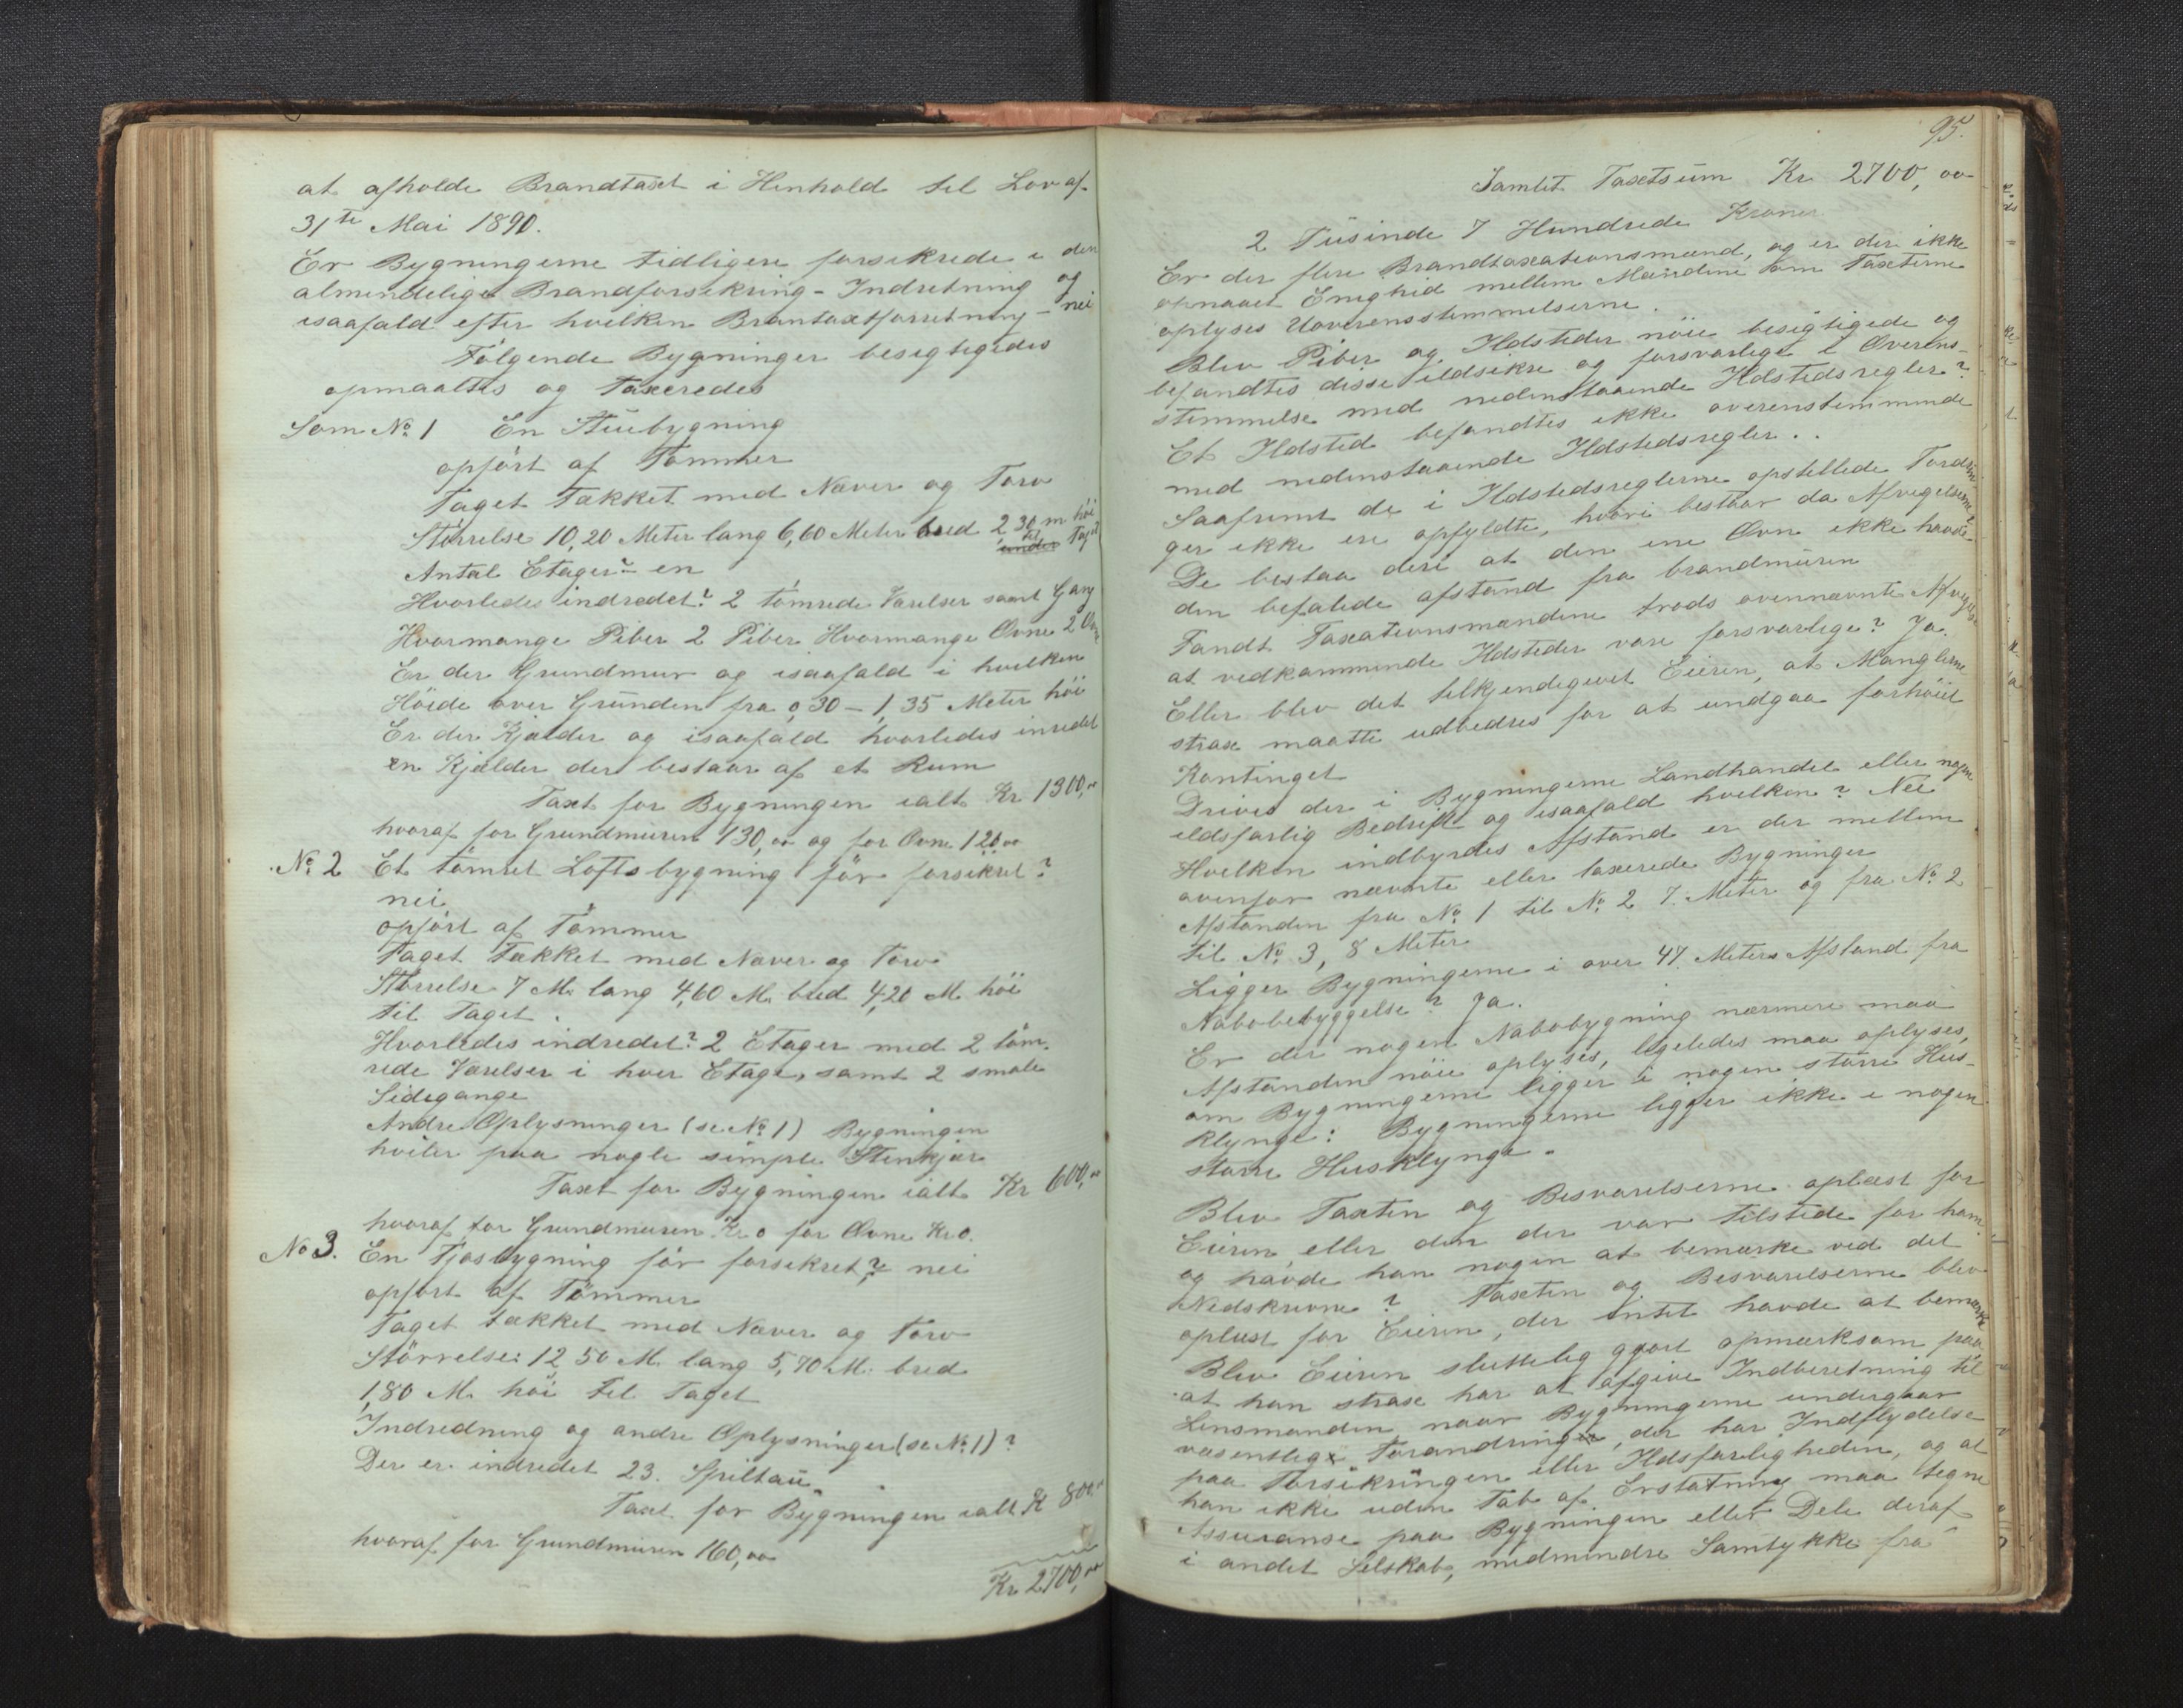 at afholde Brandtaxt i Henhold til Lov af
31te Mai 1890.
Er Bygningerne tidligere forsikrede i den
almindelige Brandforsikring-Indretning og
isaafald efter hvilken Brantaxtforretning - nei
Følgende Bygninger besigtigedes
opmaaltes og Taxeredes
Som No. 1 En Stuebygning
opført af Tømmer
Taget Tækket med Næver og Torv
Størrelse 10,20 Meter lang 6,60 Meter bred 2,30 m høi
til Taget
Antal Etager? en
Hvorledes indredet? 2 tømrede Værelser samt Gang
Hvormange Piber 2 Piber Hvormange Ovne 2 Ovne
Er der Grundmur og isaafald i hvilken
Høide over Grunden fra 0,30 - 1,35 Meter høi
Er der Kjælder og isaafald hvorledes inredet
en Kjælder der bestaar af et Rum
Taxt for Bygningen ialt Kr 1300,00
hvoraf for Grundmuren 130,00 og for Ovne 120,00
No. 2 Et tømret Loftsbygning før forsikret?
nei
opført af Tømmer
Taget Tækket med Næver og Torv
Størrelse 7 M. lang 4,60 M. bred 4,20 M. høi
til Taget.
Hvorledes indredet? 2 Etager med 2 tøm-
rede Værelser i hver Etage, samt 2 smale
Sidegange
Andre Oplysninger (se No. 1) Bygningen
hviler paa nogle simple Stenkjær
Taxt for Bygningen ialt Kr 600,00
hvoraf for Grundmuren Kr 0 for Ovne Kr 0.
No 3. En Fjøsbygning før forsikret? nei
opført af Tømmer
Taget tækket med Næver og Torv
Størrelse: 12,50 M. lang 5,70 M. bred
1,80 M. høi til Taget
Indredning og andre Oplysninger (se No. 1)?
Der er indredet 23. Spiltau
Taxt for Bygningen ialt K 800,00
hvoraf for Grundmuren 160,00
Kr 2700,00
95.
Samlet Taxtsum Kr 2700,00
2 Tusinde 7 Hundrede Kroner
Er der flere Brandtaxationsmænd, og er der ikke
opnaaet Enighed mellem Mændene om Taxterne
oplyses Uoverensstemmelserne.
Blev Piber og Ildsteder nøie besigtigede og
befandtes disse ildsikre og forsvarlige i Overens-
stemmelse med nedenstaaende Ildstedsregler?
Et Ildsted befandtes ikke overenstemmende
med nedenstaaende Ildstedsregler..
Saafremt de i Ildstedsreglerne opstillede Fordrin-
ger ikke ere opfyldte, hvori bestaar da Afvigelserne?
De bestaa deri at den ene Ovn ikke havde
den befalede afstand fra brandmuren
Fandt Taxationsmændene trods ovennævnte Afvigelse
at vedkommende Ildsteder vare forsvarlige? Ja.
Eller blev det tilkjendegivet Eieren, at Manglerne
strax maatte udbedres for at undgaa forhøiet
Kontinget
Drives der i Bygningerne Landhandel eller nogen
ildsfarlig Bedrift og isaafald hvilken? Nei
Hvilken indbyrdes Afstand er der mellem
ovenfor nævnte eller taxerede Bygninger
Afstanden fra No. 1 til No. 2 7. Meter og fra No. 2
til No. 3, 8 Meter
Ligger Bygningerne i over 47. Meters Afstand fra
Nabobebyggelse? Ja.
Er der nogen Nabobygning nærmere maa
Afstanden nøie oplyses, ligeledes maa oplyses,
om Bygningerne ligger i nogen større Hus-
klynge: Bygningerne ligger ikke i nogen
større Husklynge.
Blev Taxten og Besvarelserne oplæst for
Eieren eller den der var tilstede for ham
og havde han nogen at bemærke ved det
Nedskrevne? Taxten og Besvarelserne blev
oplæst for Eieren, der intet havde at bemærke
Blev Eieren sluttelig gjort opmærksom paa
at han strax har at afgive Indberetning til
Lensmanden naar Bygningerne undergaar
væsentlige Forandring, der har Indflydelse
paa Forsikringen eller Ildsfarligheden, og at
han ikke uden Tab af Erstatning maa tegne
Assuranse paa Bygningen eller Dele deraf
i andet Selskab, medmindre Samtykke fra